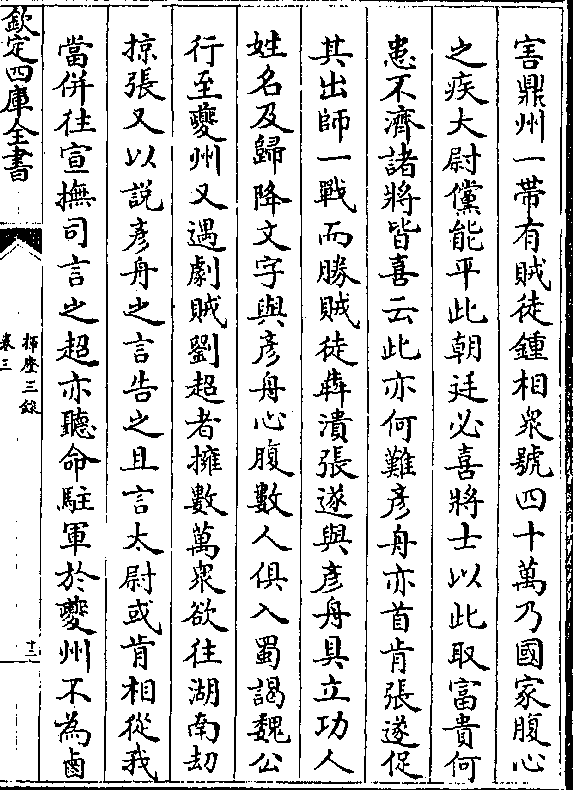 害鼎州一帶有賊徒鍾相衆號四十萬乃國家腹心
之疾大尉儻能平此朝廷必喜將士以此取富貴何
患不濟諸將皆喜云此亦何難彥舟亦首肯張遂促
其出師一戰而勝賊徒犇潰張遂與彥舟具立功人
姓名及歸降文字與彥舟心腹數人俱入蜀謁魏公
行至夔州又遇劇賊劉超者擁數萬衆欲往湖南刧
掠張又以說彥舟之言告之且言太尉或肯相從我
當併往宣撫司言之超亦聽命駐軍於夔州不為鹵
欽定四庫全書
揮麈三錄
卷三
十三